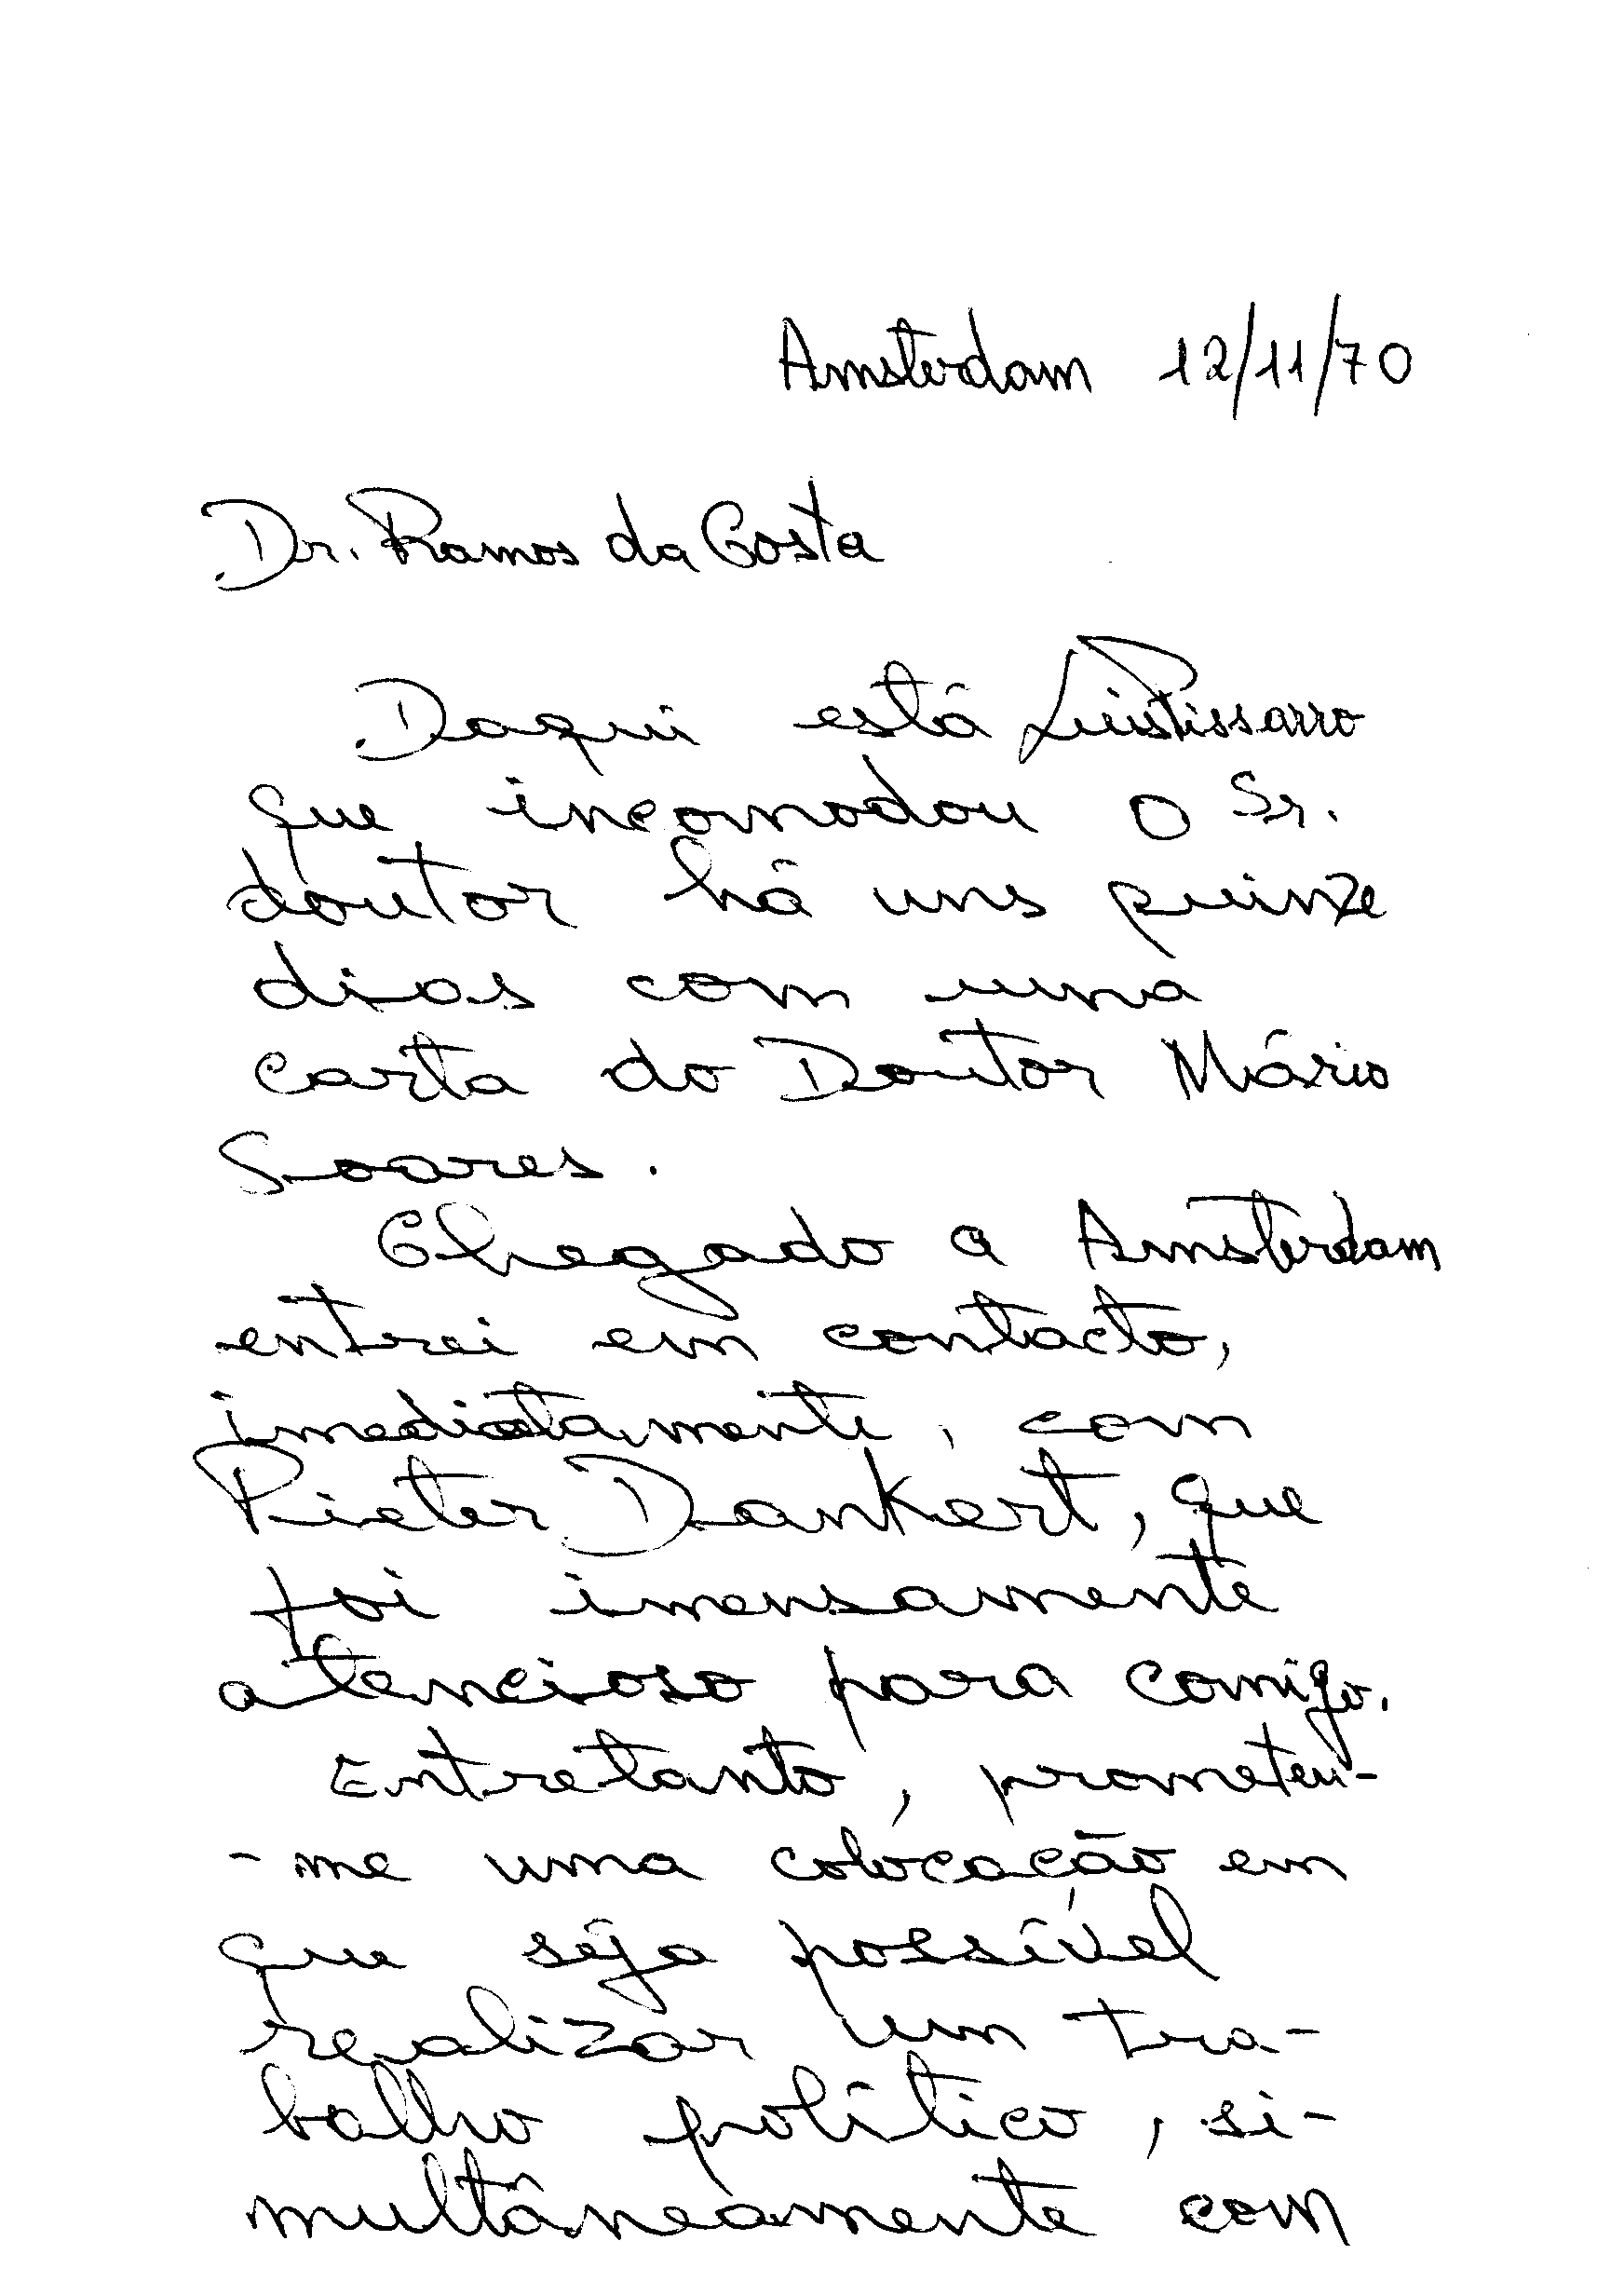 Amsterdam 12/11/70
Dr. Ramos da Costa
Daqui está Luis Pissarro
que incomodou o Sr.
doutor há uns quinze
dias com uma
carta do Doutor Mário
Soares.
Chegado a Amsterdam
entrei em contacto,
imediatamente, com
Pieter Dankert, que
foi imensamente
atencioso para comigo.
Entretanto, prometeu-
-me uma colocação em
que seja possível
realizar um tra-
balho político, si-
multâneamente com